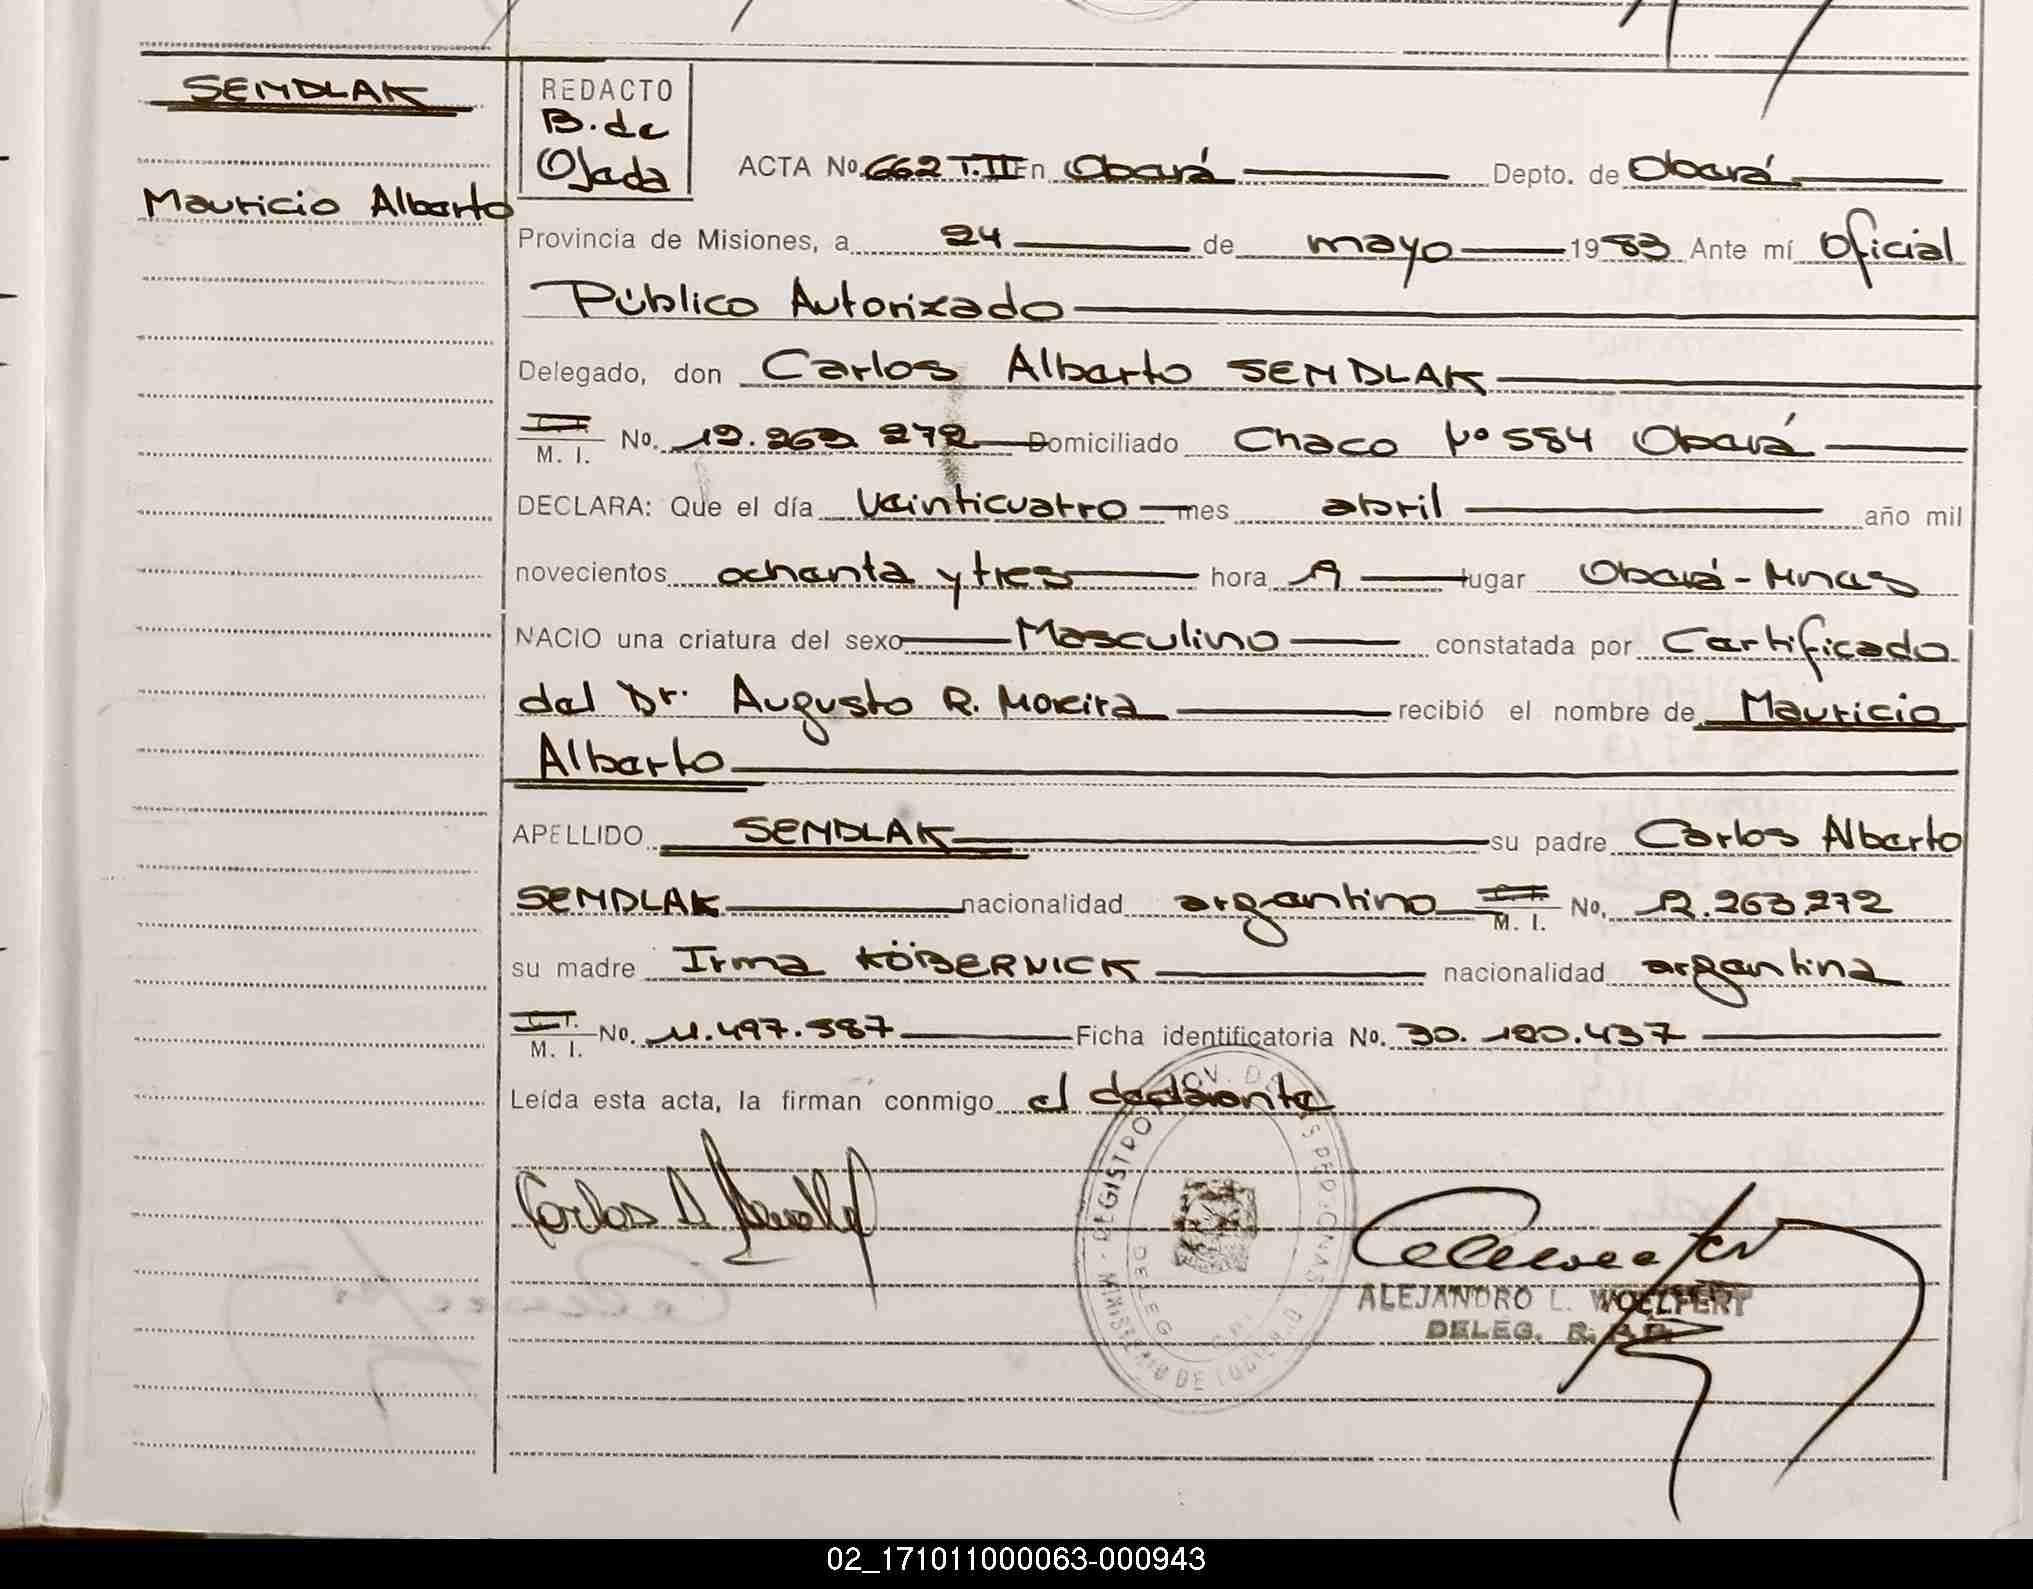 SENDLAK
Mauricio Alberto
REDACTO
B. de
Ojeda
ACTA No. 662 T.II En Oberá Depto. de Oberá
Provincia de Misiones, a 24 de mayo 1983 Ante mí Oficial
Público Autorizado
Delegado, don Carlos Alberto SENDLAK
M. I. No. 12.263.272 Domiciliado Chaco Nº 584 Oberá
DECLARA: Que el día Veinticuatro mes abril año mil
novecientos ochenta y tres hora lugar Oberá - Mnes
NACIO una criatura del sexo Masculino constatada por Certificado
del Dr. Augusto R. Moreira recibió el nombre de Mauricio
Alberto
APELLIDO SENDLAK su padre Carlos Alberto
SENDLAK nacionalidad argentino M. I. No. 12.263.272
su madre Irma KÖBERNICK nacionalidad argentina
M. I. No. 11.497.587 Ficha identificatoria No. 30.120.437
Leída esta acta, la firman conmigo el declarante
Carlos A
ALEJANDRO L. WOELFERT
DELEG.
02_171011000063-000943